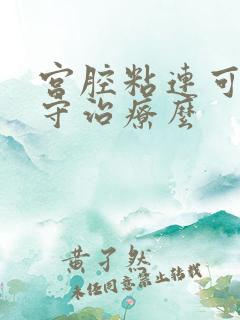 宫腔粘连可
守治疗麽
黄子然
未经同意禁止转载